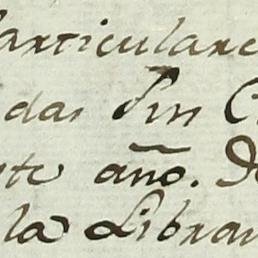 articulare
das Pin C
te año. D
la Libran